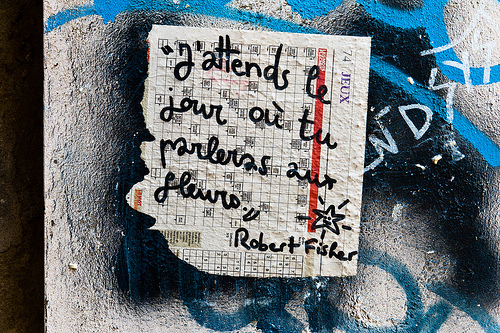 "J'attends le
jour où tu
parleras aux
fleurs."
Robert Fisher
4 JEUX
ND